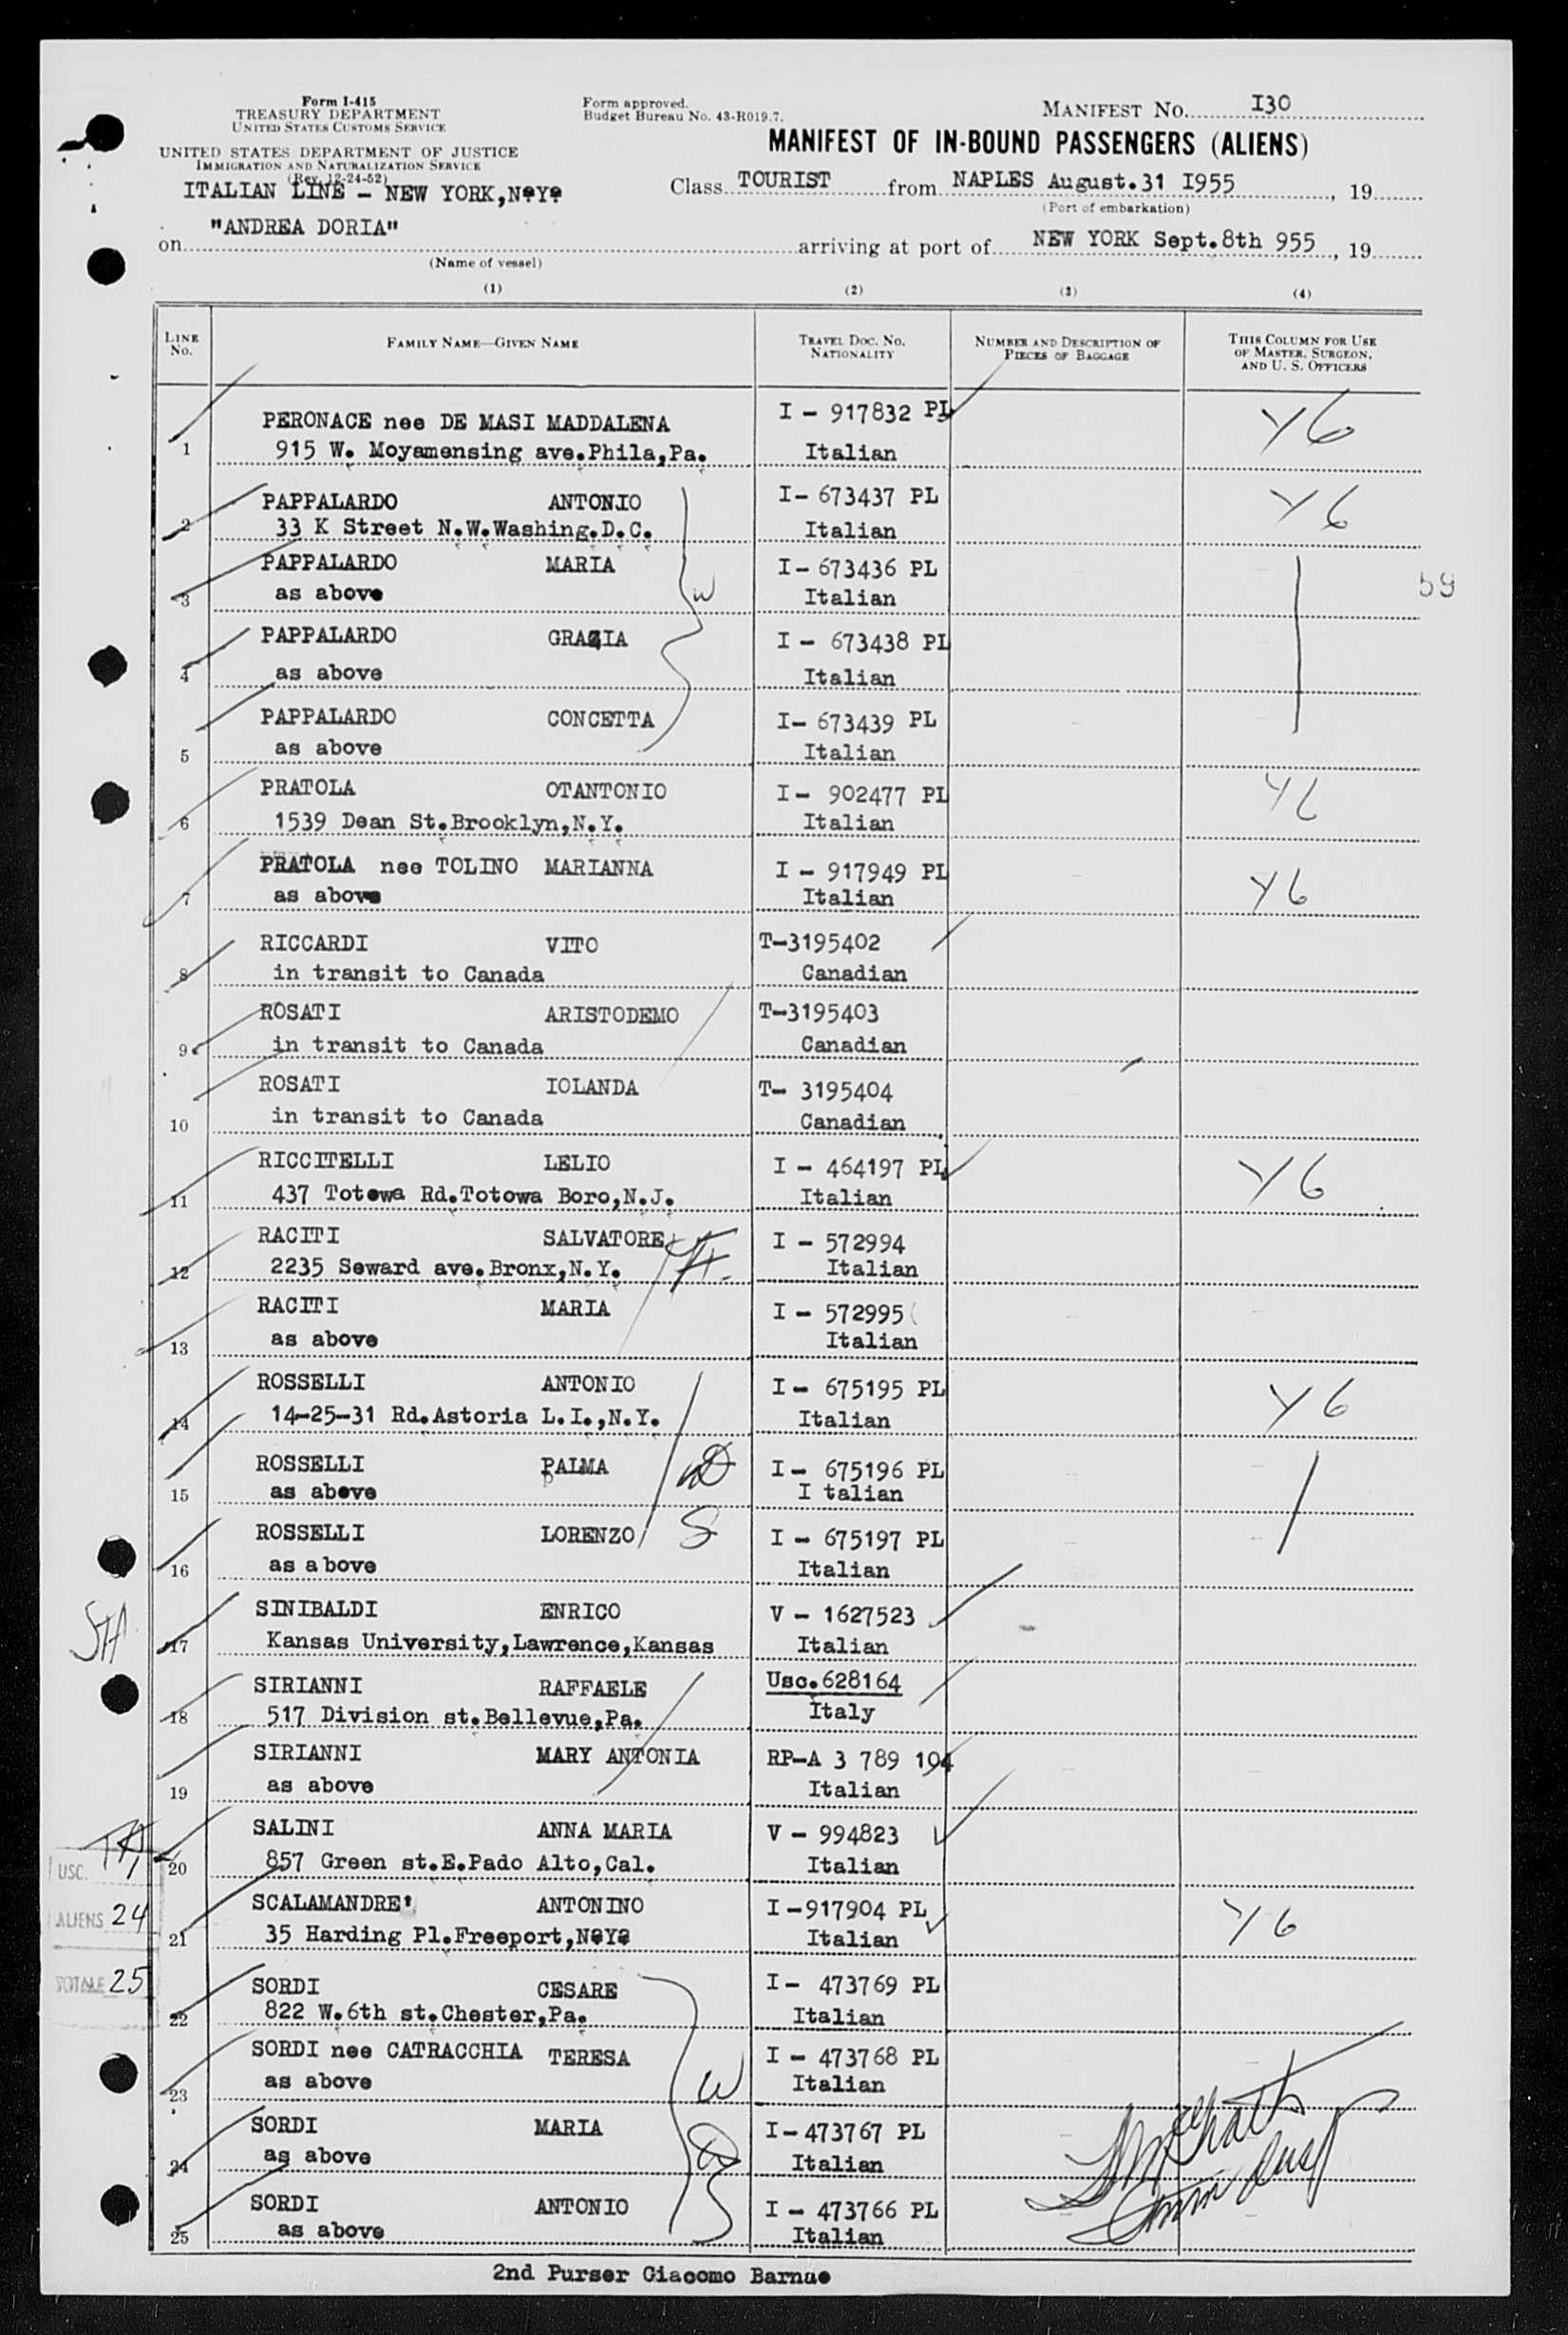 Form I-415
TREASURY DEPARTMENT
UNITED STATES CUSTOMS SERVICE
UNITED STATES DEPARTMENT OF JUSTICE
IMMIGRATION AND NATURALIZATION SERVICE
(Rev. 12-24-52)
Form approved.
Budget Bureau No. 43-R019.7.
MANIFEST NO. I30
MANIFEST OF IN-BOUND PASSENGERS (ALIENS)
ITALIAN LINE - NEW YORK,N.Y.
Class TOURIST from NAPLES August.31 I955, 19
(Port of embarkation)
on "ANDREA DORIA" arriving at port of NEW YORK Sept.8th 955, 19
(Name of vessel)
(1) (2) (3) (4)
LINE NO. FAMILY NAME—GIVEN NAME TRAVEL DOC. NO. NATIONALITY NUMBER AND DESCRIPTION OF PIECES OF BAGGAGE THIS COLUMN FOR USE OF MASTER, SURGEON, AND U. S. OFFICERS
PERONACE nee DE MASI MADDALENA I - 917832 PL Y6
1 915 W. Moyamensing ave.Phila,Pa. Italian
PAPPALARDO ANTONIO I- 673437 PL Y6
2 33 K Street N.W.Washing.D.C. Italian
PAPPALARDO MARIA I- 673436 PL
3 as above W Italian 59
PAPPALARDO GRAZIA I - 673438 PL
4 as above Italian
PAPPALARDO CONCETTA I- 673439 PL
5 as above Italian
PRATOLA OTANTONIO I- 902477 PL Y6
6 1539 Dean St.Brooklyn,N.Y. Italian
PRATOLA nee TOLINO MARIANNA I - 917949 PL Y6
7 as above Italian
RICCARDI VITO T-3195402
8 in transit to Canada Canadian
ROSATI ARISTODEMO T-3195403
9 in transit to Canada Canadian
ROSATI IOLANDA T- 3195404
10 in transit to Canada Canadian
RICCITELLI LELIO I - 464197 PL Y6
11 437 Totowa Rd.Totowa Boro,N.J. Italian
RACITI SALVATORE I - 572994
12 2235 Seward ave.Bronx,N.Y. Italian
RACITI MARIA I - 572995
13 as above Italian
ROSSELLI ANTONIO I- 675195 PL Y6
14 14-25-31 Rd.Astoria L.I.,N.Y. Italian
ROSSELLI PALMA I- 675196 PL
15 as above I talian
ROSSELLI LORENZO S I - 675197 PL
16 as above Italian
SINIBALDI ENRICO V - 1627523
17 Kansas University,Lawrence,Kansas Italian
SIRIANNI RAFFAELE Usc.628164
18 517 Division st.Bellevue,Pa. Italy
SIRIANNI MARY ANTONIA RP-A 3 789 104
19 as above Italian
SALINI ANNA MARIA V - 994823
USC. 1 20 857 Green st.E.Pado Alto,Cal. Italian
SCALAMANDRE' ANTONINO I-917904 PL Y6
ALIENS 24 21 35 Harding Pl.Freeport,N.Y. Italian
TOTALE 25 SORDI CESARE I- 473769 PL
22 822 W.6th st.Chester,Pa. Italian
SORDI nee CATRACCHIA TERESA I - 473768 PL
23 as above W Italian
SORDI MARIA I-473767 PL
24 as above D Italian
SORDI ANTONIO S I - 473766 PL
25 as above Italian
2nd Purser Giacomo Barnae